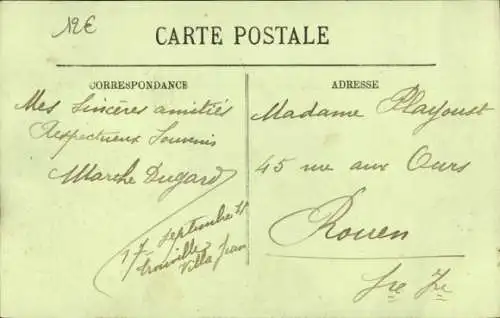 12€
CARTE POSTALE
CORRESPONDANCE
Mes Sincères amitiés
Respectueux Souvenir
Marthe Dugard
17 septembre
trouville
Villa Jean
ADRESSE
Madame Playoust
45 rue aux Ours
Rouen
Sre Ire